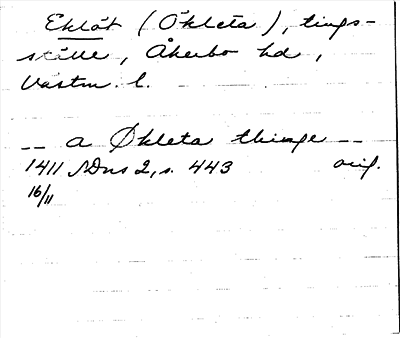 Eklåt (Ökleta), tings-
ställe, Åkerbo hd,
Västm. l.
-- a Økleta thinge --
1411 SDns 2, s. 443 orig.
16/11